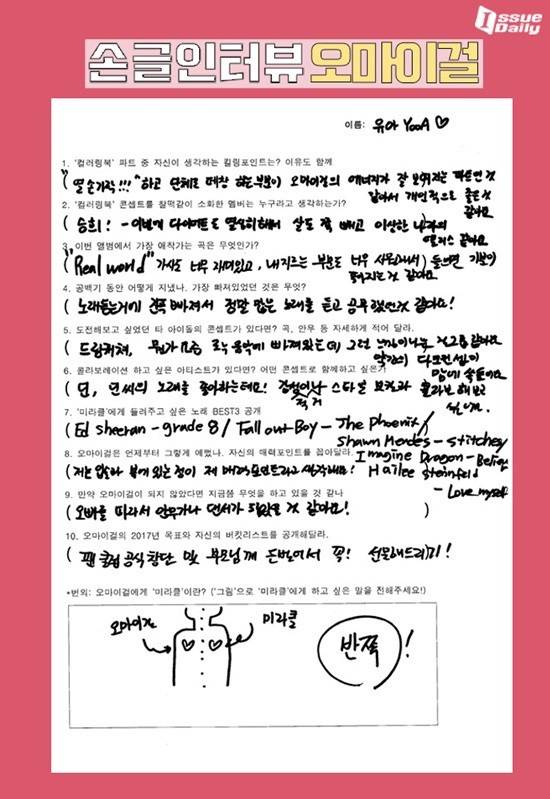 Issue
Daily
손글인터뷰 오마이걸
이름: 유아 YooA ♡
1. '컬러링북' 파트 중 자신이 생각하는 킬링포인트는? 이유도 함께
( "열 손가락!!!" 하고 단체로 떼창 하는부분이 오마이걸의 에너지가 잘 보여지는 파트인 것
같아서 개인적으로 좋은것
같아요
2. '컬러링북' 콘셉트를 찰떡같이 소화한 멤버는 누구라고 생각하는가?
( 승희! - 이번에 다이어트도 열심히해서 살도 쫙 빼고 이상한 나라의
앨리스 같아요
3. 이번 앨범에서 가장 애착가는 곡은 무엇인가?
( "Real world" 가사도 너무 재미있고, 내지르는 부분도 너무 시원해서) 들으면 기분이
좋아지는 것 같아요
4. 공백기 동안 어떻게 지냈나. 가장 빠져있었던 것은 무엇?
( 노래듣는거에 푹 빠져서 정말 많은 노래를 듣고 공부했던것 같아요!
5. 도전해보고 싶었던 타 아이돌의 콘셉트가 있다면? 곡, 안무 등 자세하게 적어 달라.
( 드림캐쳐, 뭔가 요즘 락 음악에 빠져있는데 그런 느낌이나는 것그룹 같아요
약간의 다크한 컨셉이
맘에 쏙들어요
6. 콜라보레이션 하고 싶은 아티스트가 있다면? 어떤 콘셉트로 함께하고 싶은가
( 딘, 딘씨의 노래를 좋아하는데요! 스타일 보컬과 콜라보 해보고
싶네요.
7. '미라클'에게 들려주고 싶은 노래 BEST3 공개
( Ed sheeran - grade 8 / Fall out Boy - The Phoenix /
Shawn Mendes - stitches
Imagine Dragon - Believer
Hailee Steinfeld
- Love myself
8. 오마이걸은 언제부터 그렇게 예뻤나. 자신의 매력포인트를 꼽아달라.
( 저는 볼에 있는 점이 제 매력포인트라고 생각해요!
9. 만약 오마이걸이 되지 않았다면 지금쯤 무엇을 하고 있을 것 같나
( 오빠를 따라서 안무가나 댄서가 되었을 것 같아요! )
10. 오마이걸의 2017년 목표와 자신의 버킷리스트를 공개해달라.
( 팬 클럽 공식 창단 및 부모님께 돈벌어서 꼭! 선물해드리기!
*번외: 오마이걸에게 '미라클'이란? ('그림'으로 '미라클'에게 하고 싶은 말을 전해주세요!)
오마이걸 미라클
반쪽!